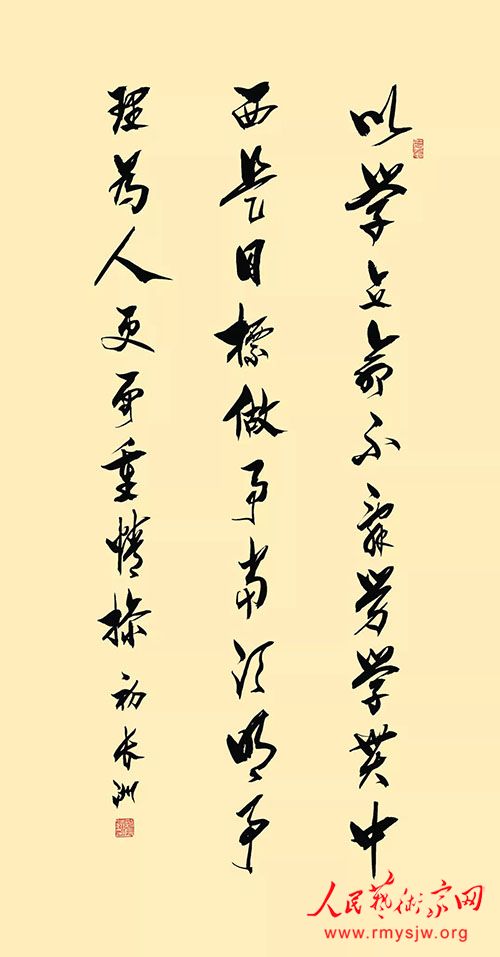 以学立命不辞劳学贯中
西是目標做事當须明事
理为人更要重情操
初长洲
人民藝術家网
www.rmysjw.org